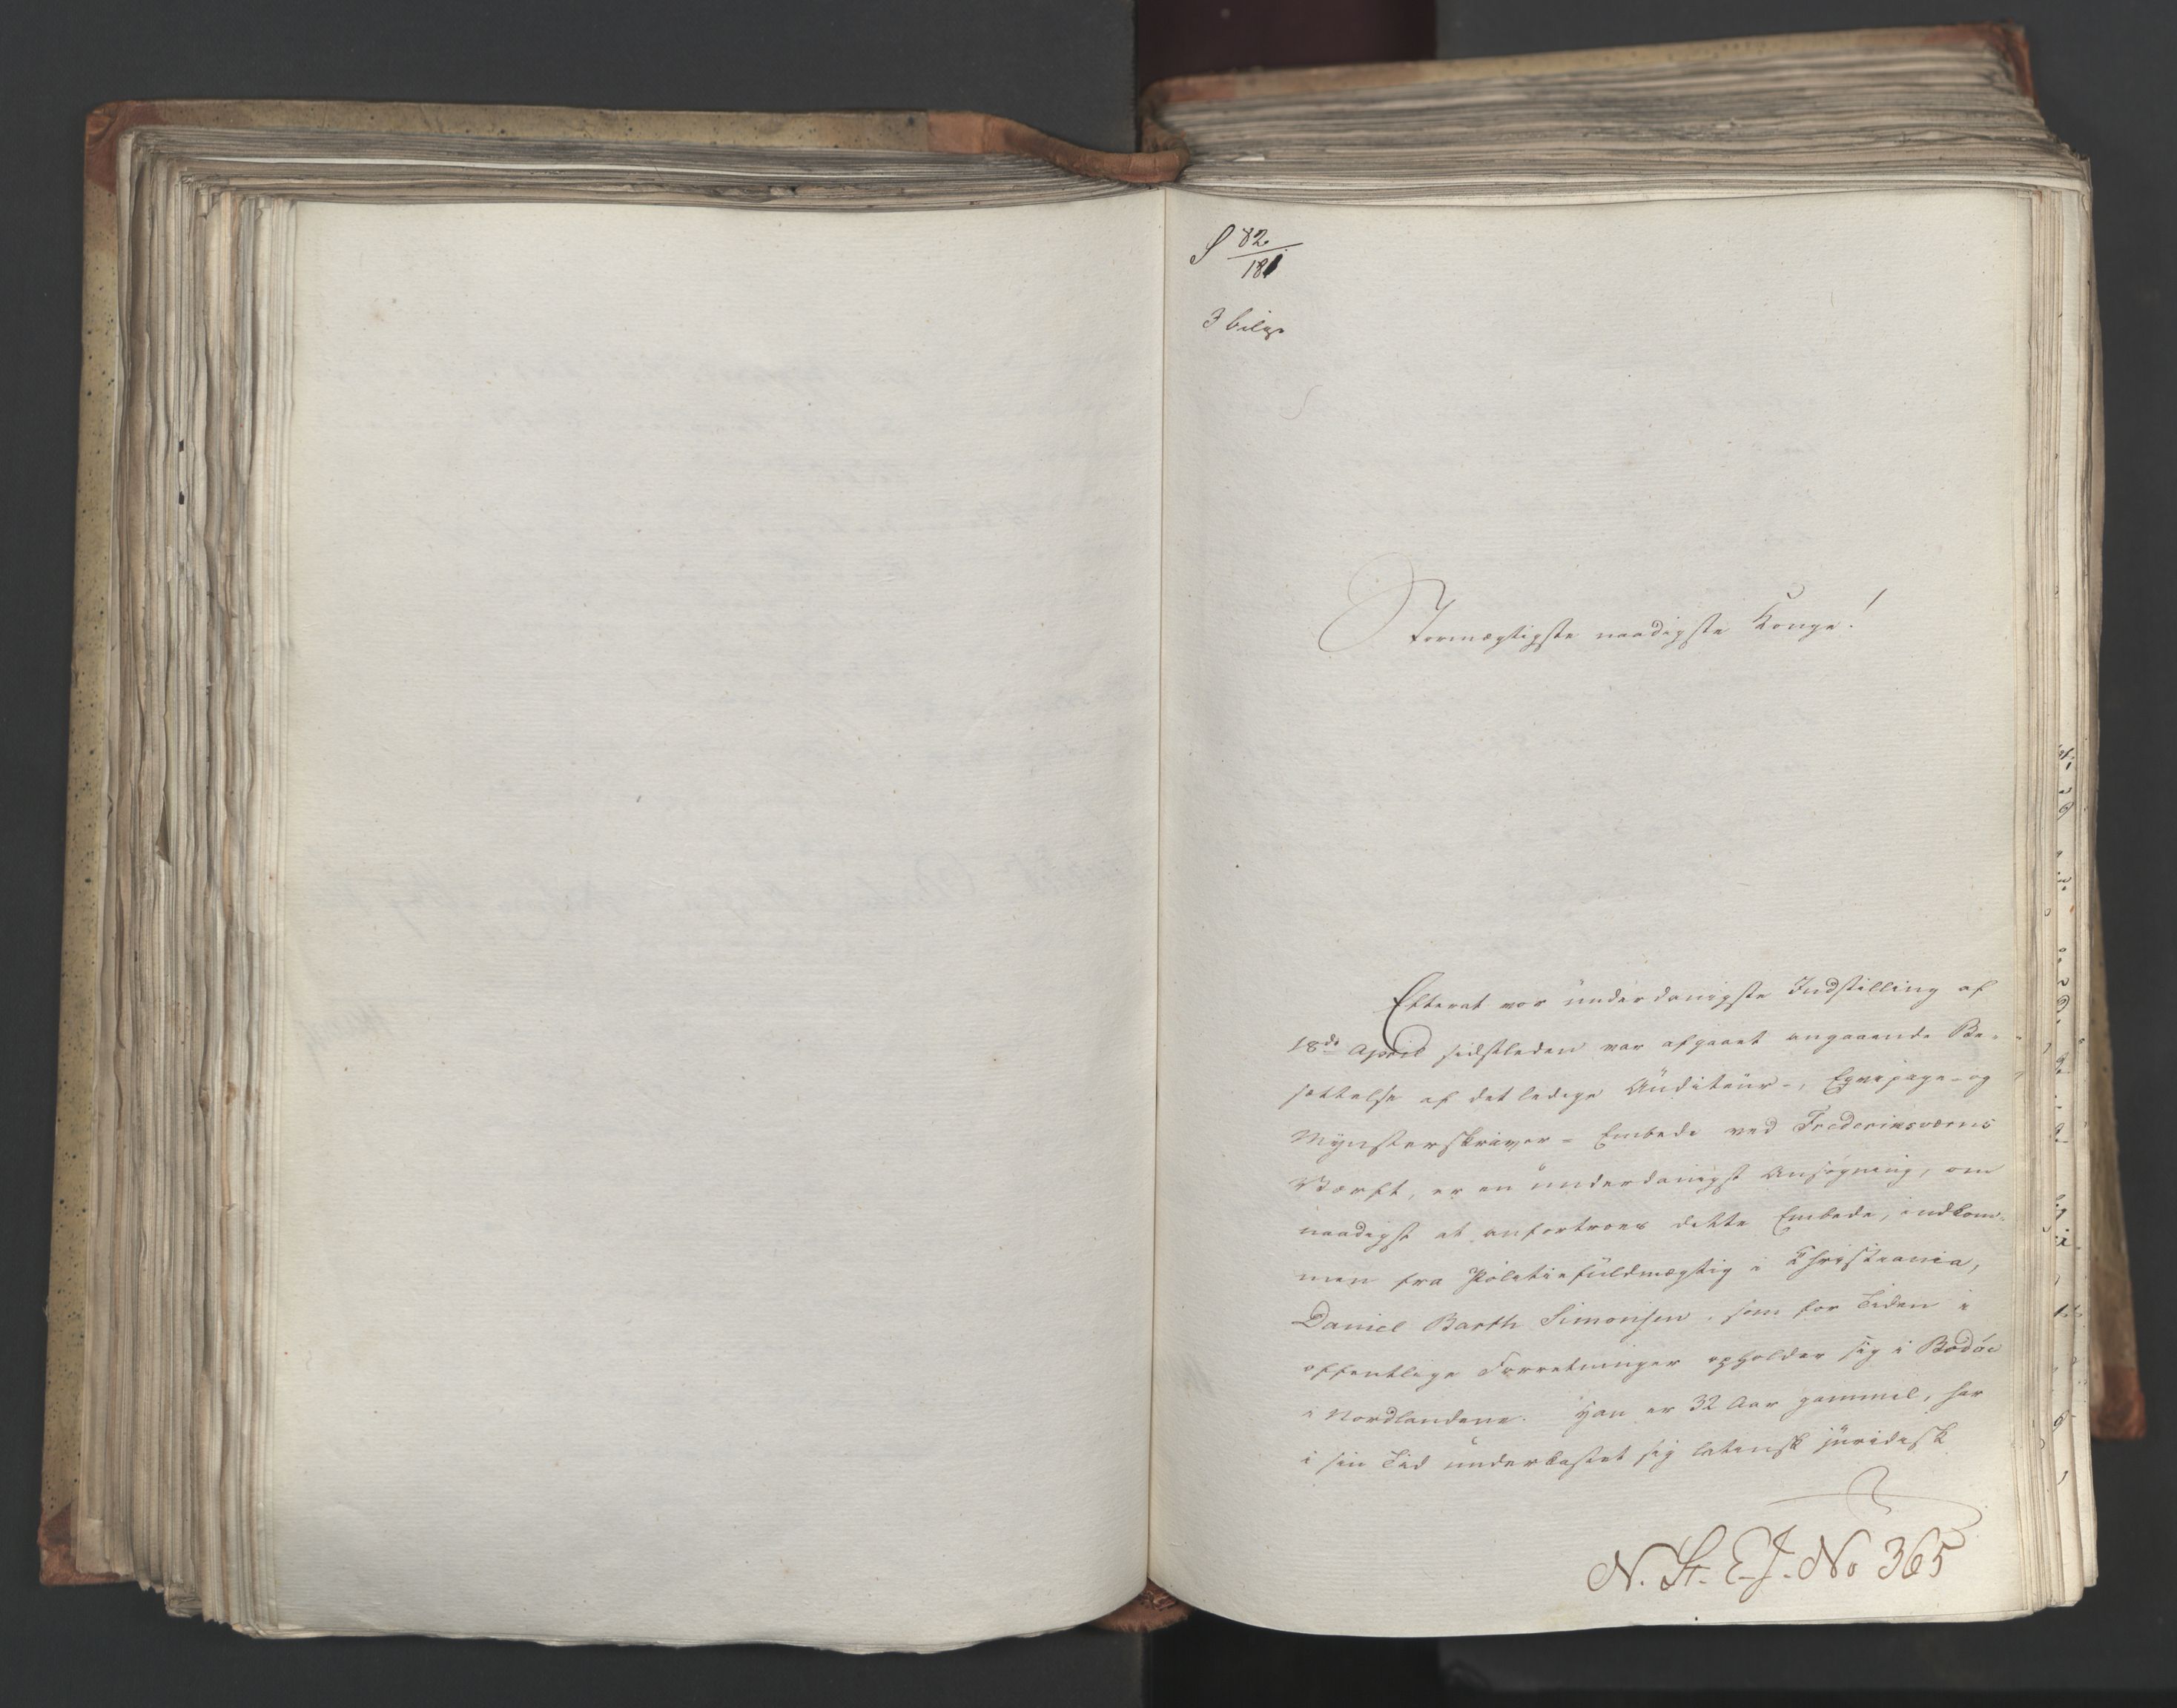 S 82
181
3 bilag
Stormægtigste naadigste Konge!
Efterat vor underdanigste Indstilling af
18de April sidstleden var afgaaet angaaende Be-
sættelse af det ledige Auditeur-, Eqvipage- og
Mynsterskriver- Embede ved Frederiksværns
Værft, er en underdanigst Ansøgning, om
naadigst at anfortroes dette Embede, indkom-
men fra Politiefuldmægtig i Christiania,
Daniel Barth Simonsen, som for Tiden i
offentlige Forretninger opholder sig i Bodøe
i Nordlandene. Han er 32 Aar gammel, har
i sin Tid underkastet sig latinsk juridisk
N. St. E. J. No 365